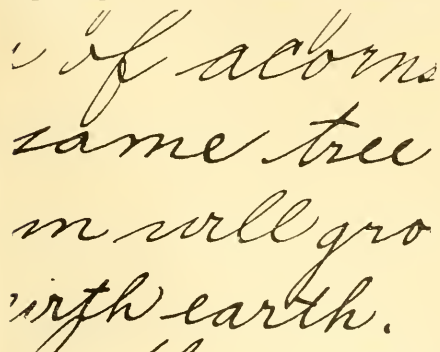 of acorns
same tree
m will gro
irth earth.